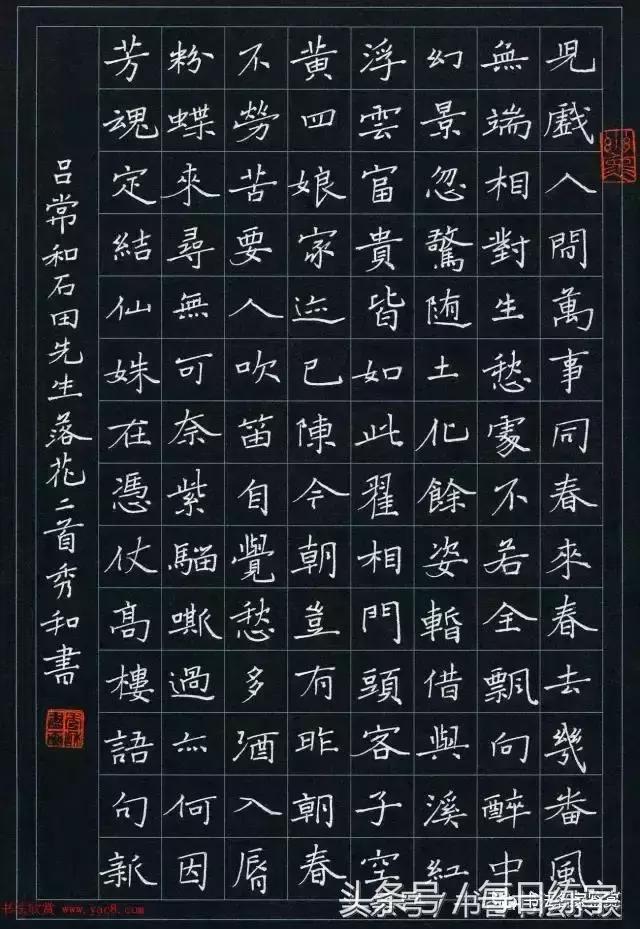 児戲人間萬事同春來春去幾番風
無端相對生愁處不若全飄向醉中
幻景忽驚随土化餘姿暫借與溪紅
浮雲富貴皆如此翟相門頭客子空
黄四娘家迹已陳今朝豈有昨朝春
不勞苦要人吹笛自覺愁多酒入脣
粉蝶來尋無可奈紫騮嘶過亦何因
芳魂定結仙姝在憑仗高樓語句新
吕常和石田先生落花二首秀和書
书法欣赏 www.yac8.com
头条号/每日练字